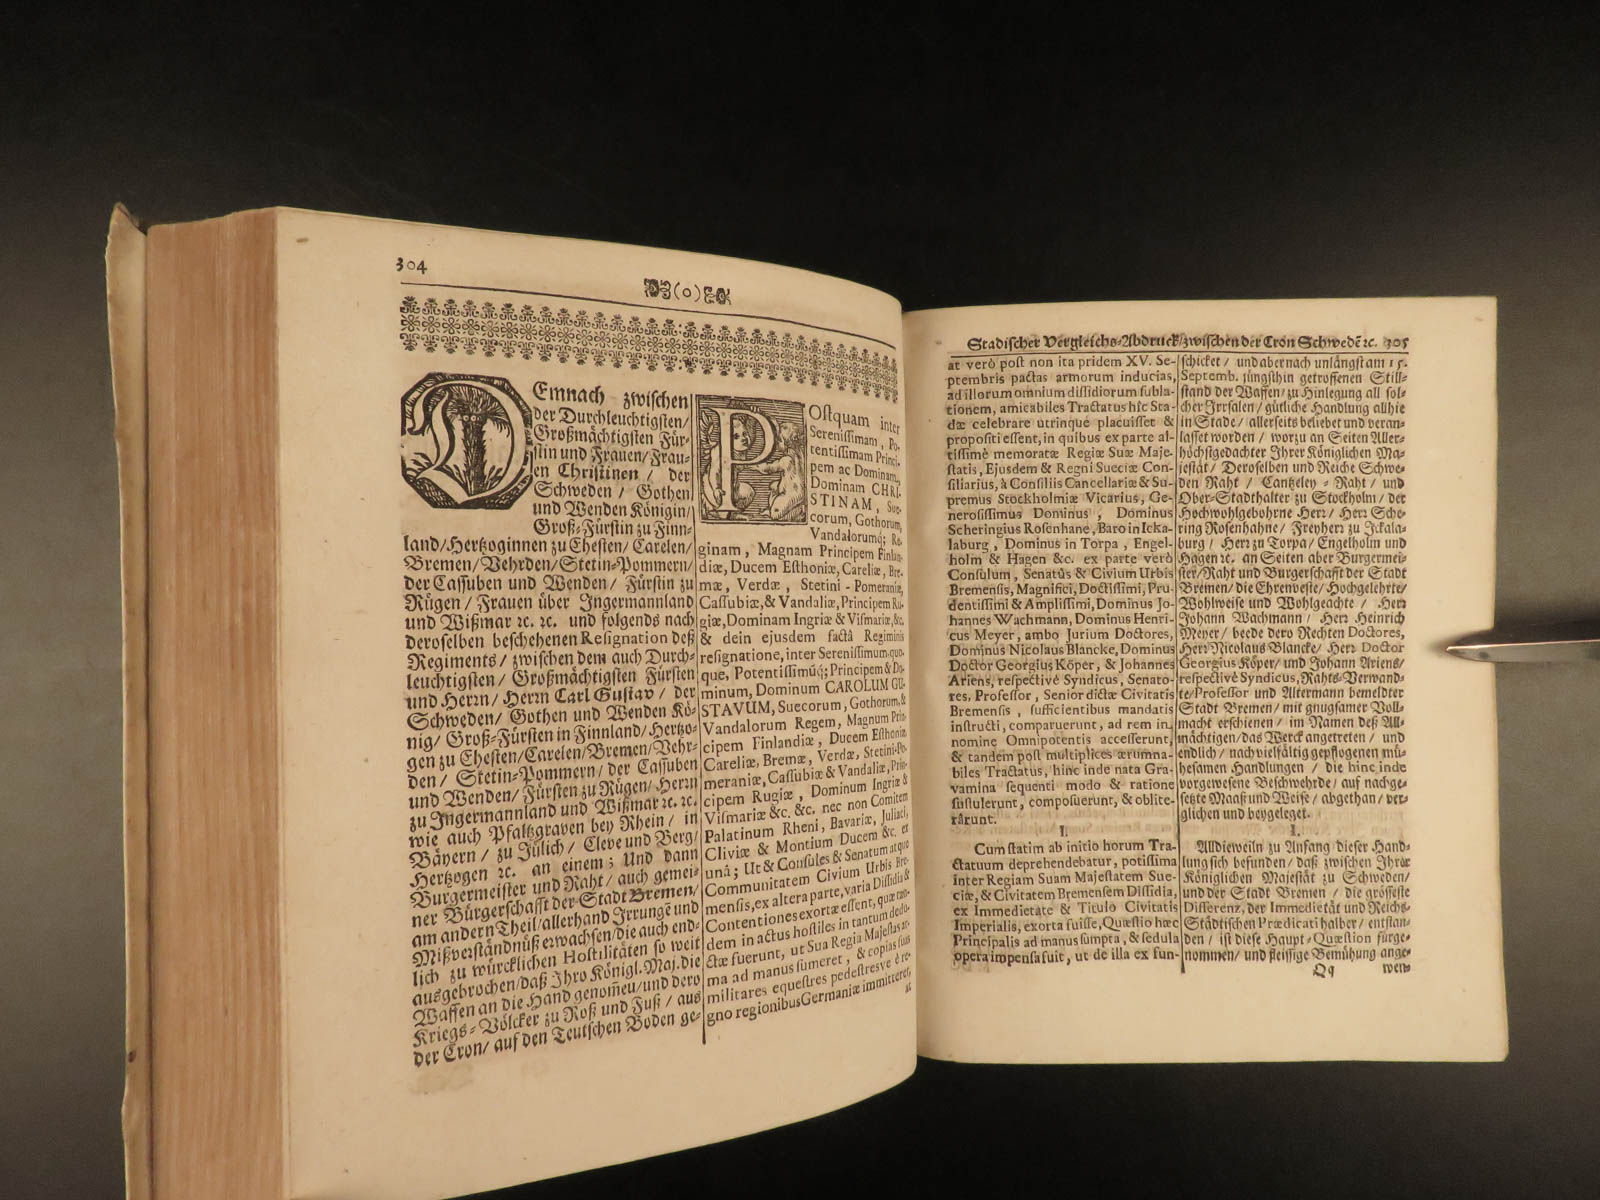 304
(o)
DEmnach zwischen
der Durchleuchtigsten/
Großmächtigsten Für-
stin und Frauen/ Frau-
en Christinen / der
Schweden / Gothen
und Wenden Königin/
Groß-Fürstin zu Finn-
land/ Hertzoginnen zu Ehesten/ Carelen/
Bremen/ Vehrden/ Stetin-Pommern/
der Cassuben und Wenden / Fürstin zu
Rügen / Frauen über Ingermannland
und Wißmar ꝛc. ꝛc. und folgends nach
deroselben beschehenen Resignation deß
Regiments / zwischen dem auch Durch-
leuchtigsten / Großmächtigsten Fürsten
und Herrn/ Herrn Carl Gustav / der
Schweden/ Gothen und Wenden Kö-
nig/ Groß-Fürsten in Finnland/ Hertzo-
gen zu Ehesten/ Carelen/ Bremen/ Vehr-
den / Stetin-Pommern/ der Cassuben
und Wenden/ Fürsten zu Rügen/ Herrn
zu Ingermannland und Wißmar ꝛc. ꝛc.
wie auch Pfaltzgraven bey Rhein / in
Bäyern / zu Jülich/ Cleve und Berg/
Hertzogen ꝛc. an einem; Und dann
Burgermeister und Raht/ auch gemei-
ner Bürgerschafft der Stadt Bremen/
am andern Theil/ allerhand Irrunge und
Mißverständnüß erwachsen/ die auch end-
lich zu würcklichen Hostilitäten so weit
ausgebrochen/ daß Ihro Königl. Maj. die
Waffen an die Hand genom̃en/ und dero
Kriegs-Völcker zu Roß und Fuß / aus
der Cron/ auf den Teutschen Boden ge-
POstquam inter
Serenissimam, Po-
tentissimam Princi-
pem ac Dominam,
Dominam CHRI-
STINAM, Sue-
corum, Gothorum,
Vandalorumq; Re-
ginam, Magnam Principem Finlan-
diæ, Ducem Esthoniæ, Careliæ, Bre-
mæ, Verdæ, Stetini-Pomeraniæ,
Cassubiæ, & Vandaliæ, Principem Ru-
giæ, Dominam Ingriæ & Vismariæ, &c.
& dein ejusdem factâ Regiminis
resignatione, inter Serenissimum quo-
que, Potentissimúq; Principem & Do-
minum, Dominum CAROLUM GU-
STAVUM, Suecorum, Gothorum, &
Vandalorum Regem, Magnum Prin-
cipem Finlandiæ, Ducem Esthoniæ
Careliæ, Bremæ, Verdæ, Stetini-Po-
meraniæ, Cassubiæ & Vandaliæ, Prin-
cipem Rugiæ, Dominum Ingriæ &
Vismariæ &c. &c. nec non Comitem
Palatinum Rheni, Bavariæ, Juliaci,
Cliviæ & Montium Ducem &c. ex
unâ; Ut & Consules & Senatum atque
Communitatem Civium Urbis Bre-
mensis, ex altera parte, varia Dissidia &
Contentiones exortæ essent, quæ tan-
dem in actus hostiles in tantum dedu-
ctæ fuerunt, ut Sua Regia Majestas ar-
ma ad manus sumeret, & copias suas
militares equestres pedestresve è re-
gno regionibus Germaniæ immitteret,
at
Stadischer Vergleichs-Abdruck/ zwischen der Cron Schwedē ꝛc. 305
at verò post non ita pridem XV. Se-
ptembris pactas armorum inducias,
ad illorum omnium dissidiorum subla-
tionem, amicabiles Tractatus hîc Sta-
dæ celebrare utrinque placuisset &
propositi essent, in quibus ex parte al-
tissimè memoratæ Regiæ Suæ Maje-
statis, Ejusdem & Regni Sueciæ Con-
siliarius, à Consiliis Cancellariæ & Su-
premus Stockholmiæ Vicarius, Ge-
nerosissimus Dominus, Dominus
Scheringius Rosenhane, Baro in Icka-
laburg, Dominus in Torpa, Engel-
holm & Hagen &c. ex parte verò
Consulum, Senatûs & Civium Urbis
Bremensis, Magnifici, Doctissimi, Pru-
dentissimi & Amplissimi, Dominus Jo-
hannes Wachmann, Dominus Henri-
cus Meyer, ambo Jurium Doctores,
Dominus Nicolaus Blancke, Dominus
Doctor Georgius Köper, & Johannes
Ariens, respectivè Syndicus, Senato-
res, Professor, Senior dictæ Civitatis
Bremensis, sufficientibus mandatis
instructi, comparuerunt, ad rem in
nomine Omnipotentis accesserunt,
& tandem post multiplices ærumna-
biles Tractatus, hinc inde nata Gra-
vamina sequenti modo & ratione
sustulerunt, composuerunt, & oblite-
rârunt:
I.
Cum statim ab initio horum Tra-
ctatuum deprehendebatur, potissima
inter Regiam Suam Majestatem Sue-
ciæ, & Civitatem Bremensem Dissidia,
ex Immedietate & Titulo Civitatis
Imperialis, exorta fuisse, Quæstio hæc
Principalis ad manus sumpta, & sedula
opera impensa fuit, ut de illa ex fun-
schicket / und aber nach unlängst am 15.
Septemb. jüngsthin getroffenen Still-
stand der Waffen/ zu Hinlegung all sol-
cher Irrsalen/ gütliche Handlung allhie
in Stade/ allerseits beliebet und veran-
lasset worden / worzu an Seiten Aller-
höchstgedachter Ihrer Königlichen Ma-
jestät/ Deroselben und Reiche Schwe-
den Raht / Cantzeley - Raht / und
Ober-Stadthalter zu Stockholm/ der
Hochwohlgebohrne Herr/ Herr Sche-
ring Rosenhahne/ Freyherr zu Ickala-
burg / Herr zu Torpa/ Engelholm und
Hagen ꝛc. an Seiten aber Burgermei-
ster/ Raht und Burgerschafft der Stadt
Bremen/ die Ehrenveste/ Hochgelehrte/
Wohlweise und Wohlgeachte / Herr
Johann Wachmann/ Herr Heinrich
Meyer/ beede dero Rechten Doctores,
Herr Nicolaus Blancke/ Herr Doctor
Georgius Köper/ und Johann Ariens/
respectivè Syndicus, Rahts-Verwand-
te/ Professor und Altermann bemeldter
Stadt Bremen/ mit gnugsamer Voll-
macht erschienen / im Namen deß All-
mächtigen/ das Werck angetreten / und
endlich / nach vielfältig gepflogenen mü-
hesamen Handlungen / die hinc inde
vorgewesene Beschwehrde/ auf nachge-
setzte Maaß und Weise / abgethan/ ver-
glichen und beygeleget.
I.
Alldieweiln zu Anfang dieser Hand-
lung sich befunden/ daß zwischen Ihrer
Königlichen Majestät zu Schweden/
und der Stadt Bremen / die grösseste
Differenz, der Immedietät und Reichs-
Städtischen Prædicati halber/ entstan-
den / ist diese Haupt-Quæstion fürge-
nommen/ und fleissige Bemühung ange-
Qq
wen-